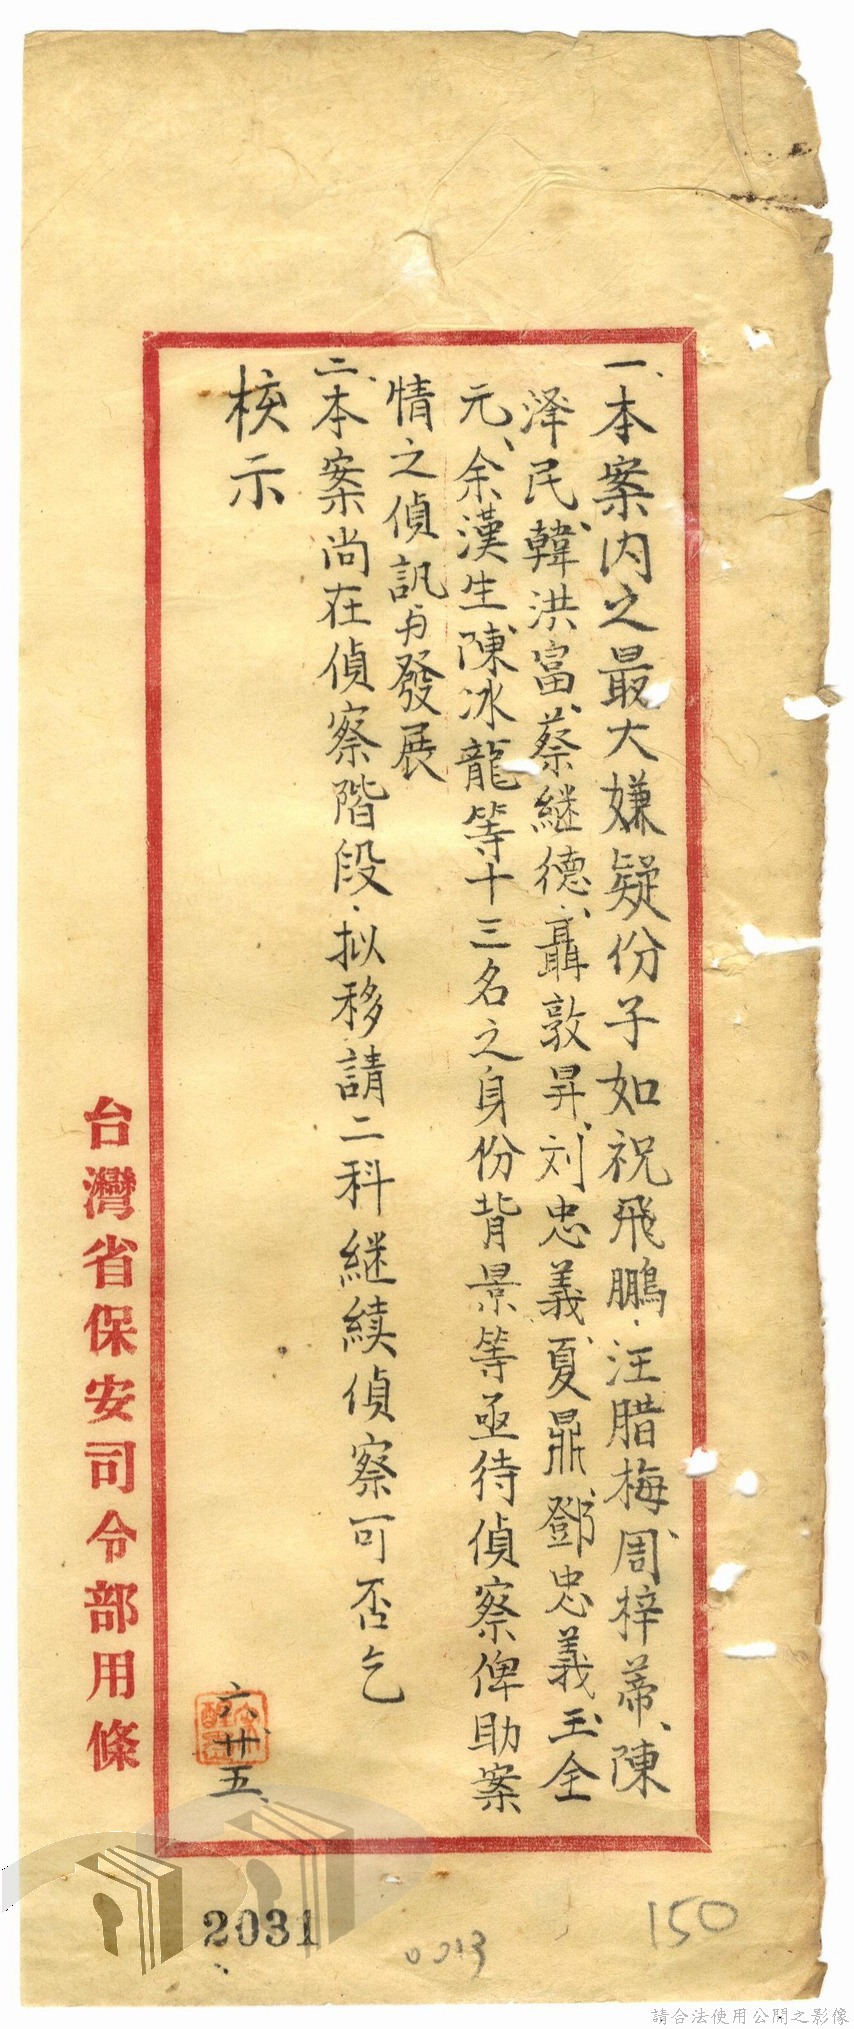 一、本案內之最大嫌疑份子如祝飛鵬、汪腊梅、周梓蒂、陳
泽民、韓洪富、蔡継德、聶敦昇、刘忠義、夏鼎、鄧忠義、王全
元、余漢生、陳冰龍等十三名之身份背景等亟待偵察俾助案
情之偵訊与發展
二、本案尚在偵察階段、拟移請二科継續偵察可否乞
核示
六、廿五、
台灣省保安司令部用條
2031
0013
150
請合法使用公開之影像